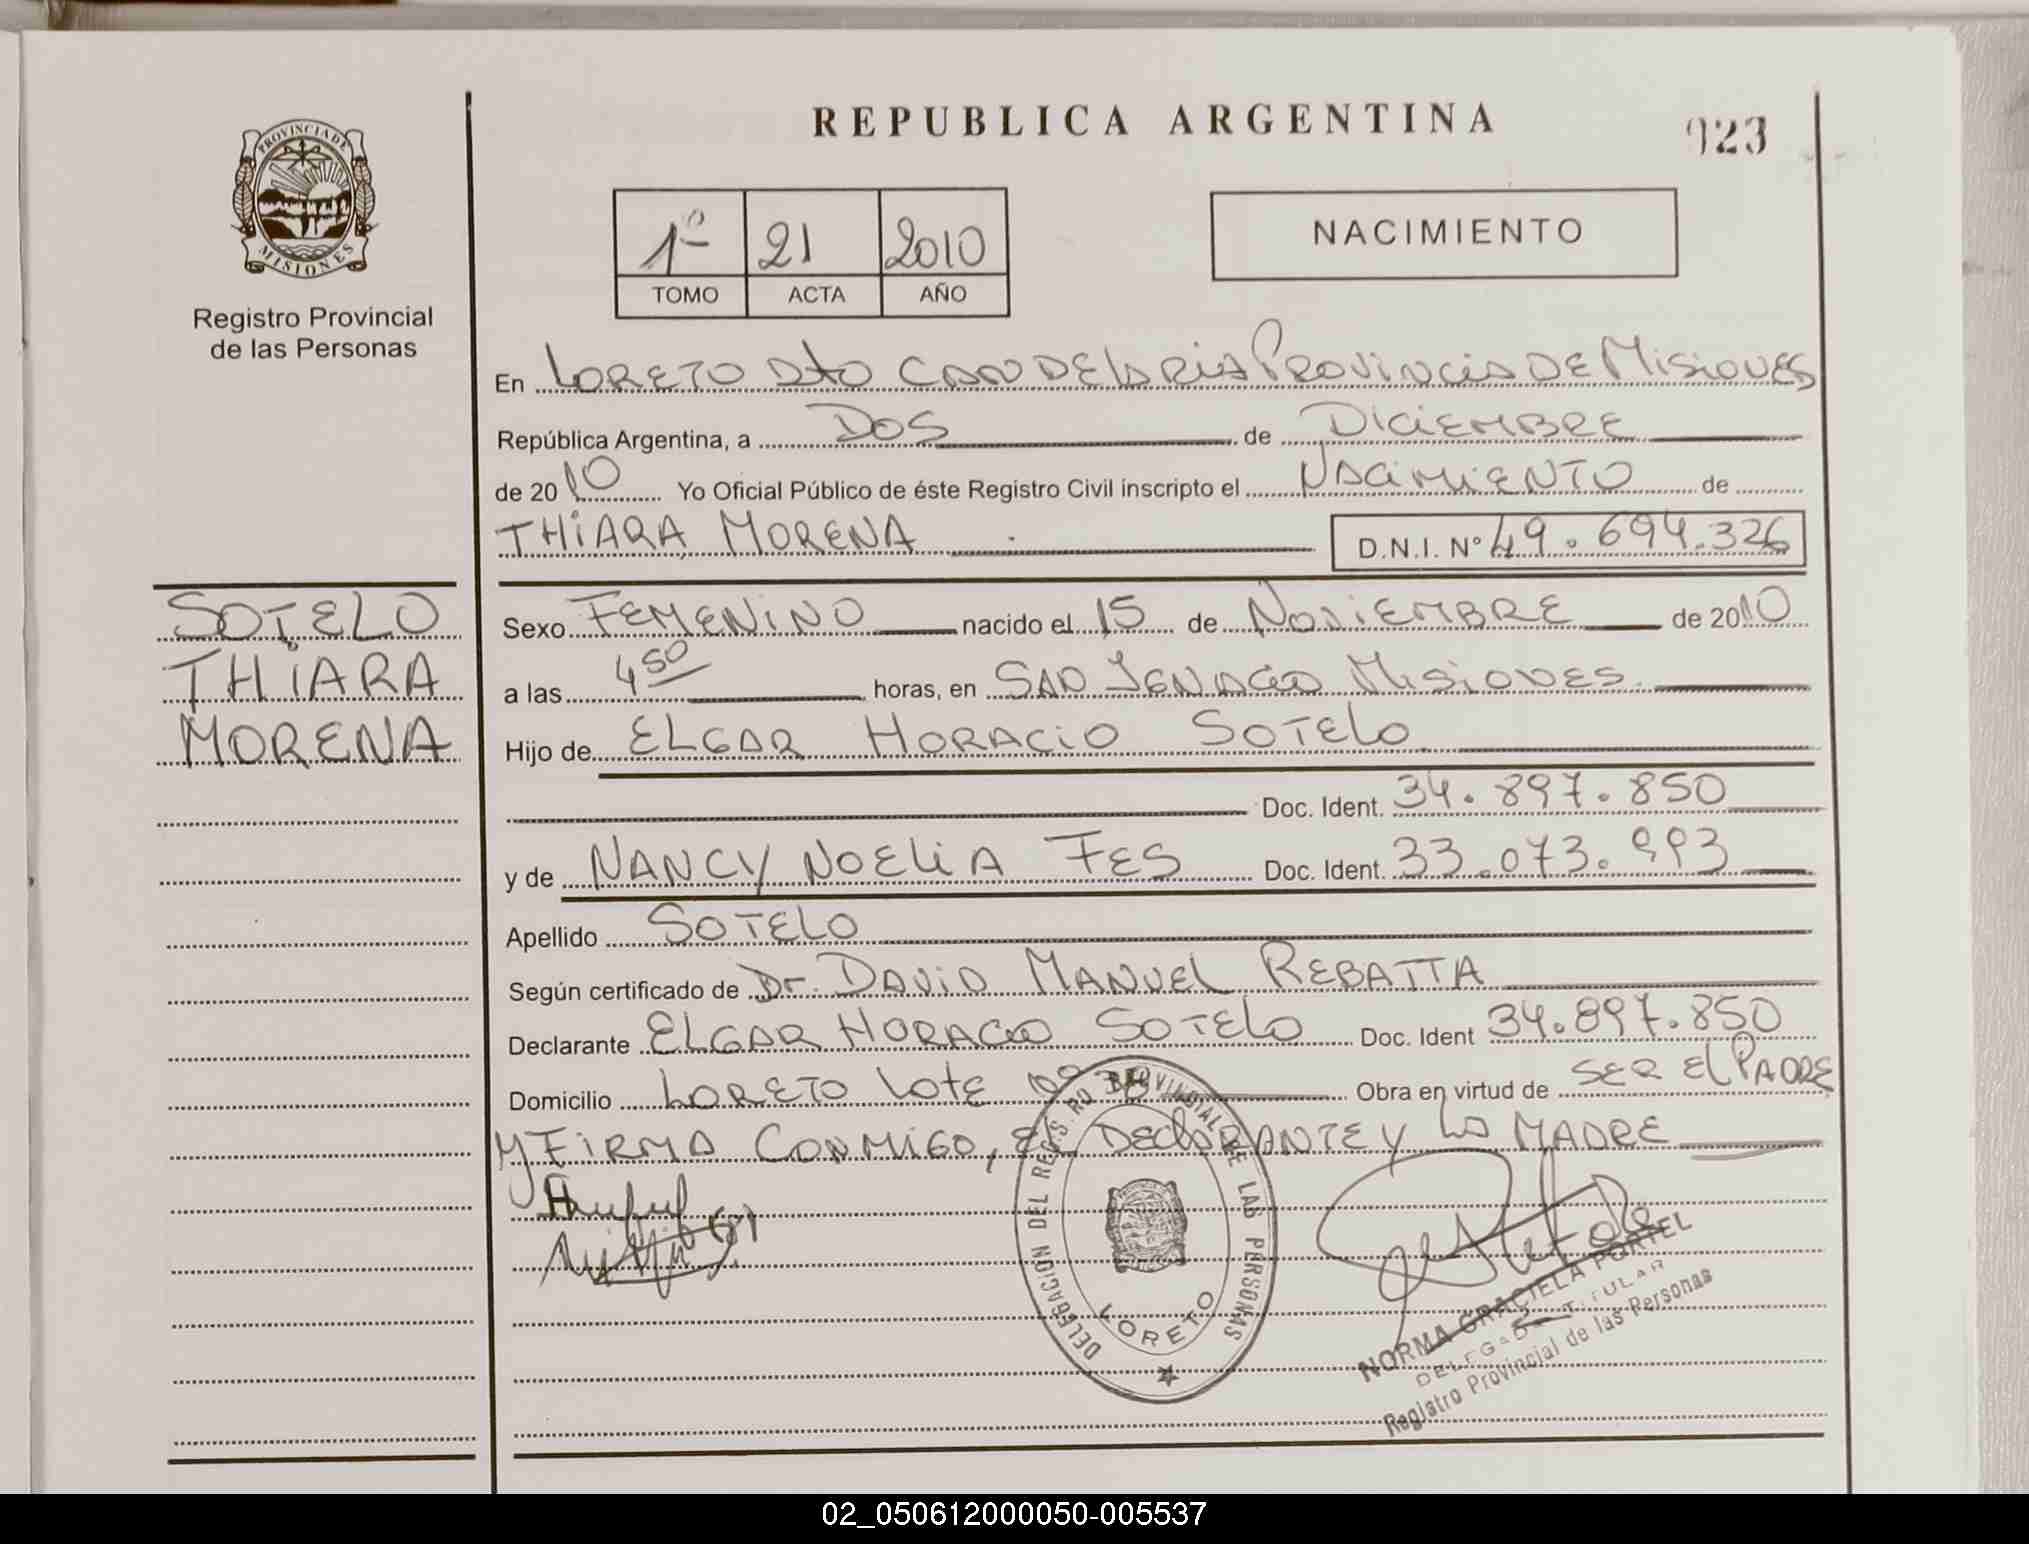 REPUBLICA ARGENTINA
923
PROVINCIA DE
MISIONES
Registro Provincial
de las Personas
1º 21 2010
TOMO ACTA AÑO
NACIMIENTO
En LORETO Dto CANDELARIA PROVINCIA DE MISIONES
República Argentina, a DOS de DICIEMBRE
de 2010 Yo Oficial Público de éste Registro Civil inscripto el NACIMIENTO de
THIARA MORENA D.N.I. Nº 49.694.326
SOTELO
THIARA
MORENA
Sexo FEMENINO nacido el 15 de NOVIEMBRE de 2010
a las 4 50 horas, en SAN IGNACIO MISIONES.
Hijo de ELGAR HORACIO SOTELO
Doc. Ident. 34.897.850
y de NANCY NOELIA FES Doc. Ident. 33.073.993
Apellido SOTELO
Según certificado de Dr. DAVID MANUEL REBATTA
Declarante ELGAR HORACIO SOTELO Doc. Ident 34.897.850
Domicilio LORETO LOTE Obra en virtud de SER EL PADRE
Y FIRMA CONMIGO, EL DECLARANTE Y LA MADRE
DELEGACION DEL REGISTRO PROVINCIAL DE LAS PERSONAS
LORETO
NORMA GRACIELA PORTEL
DELEGADA TITULAR
Registro Provincial de las Personas
02_050612000050-005537